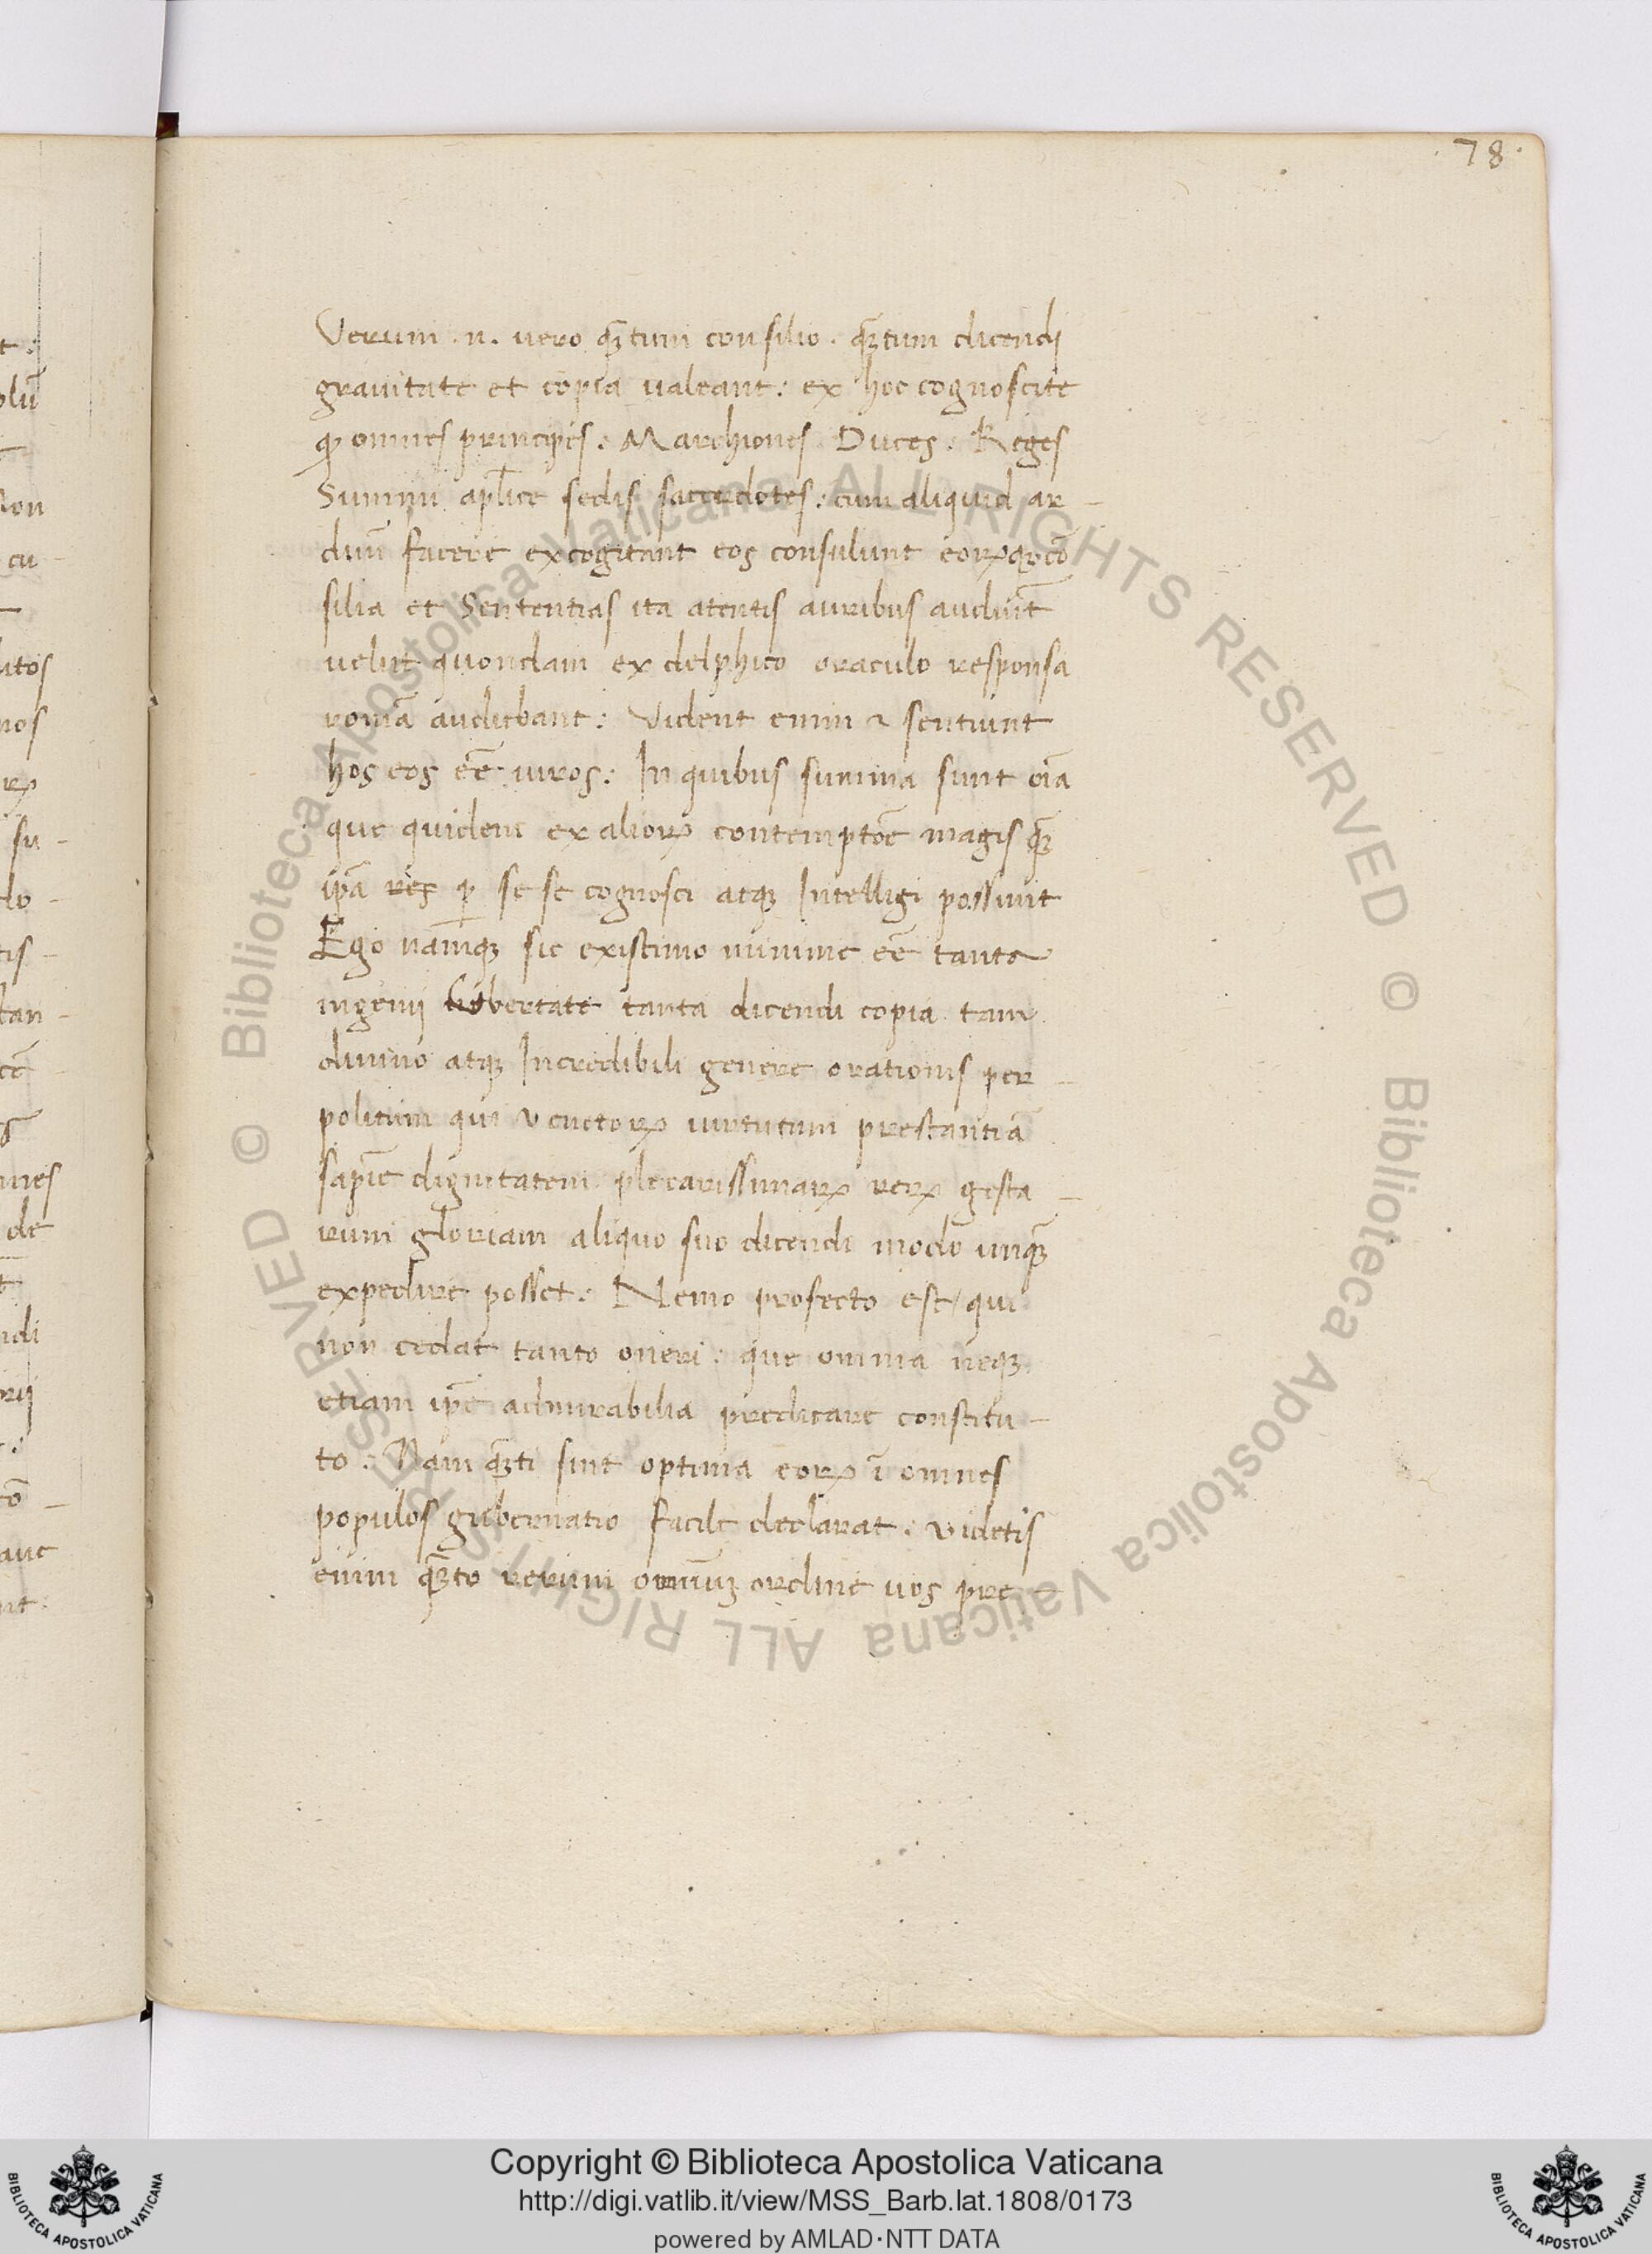 ·78·
Verum .n. uero qᷓtum consilio. qᷓtum dicendi
grauitate et copia ualeant: ex hoc cognoscite
ꝙ omnes principes. Marchiones Duces. Reges
Summi apl̅ice sedis sacerdotes: cum aliquid ar-
duū facere excogitant eos consulunt eoꝝqꝫ cō
silia et Sententias ita atentis auribus audiūt
uelut quondam ex delphico oraculo responsa
romā audiebant: Vident enim ⁊ sentiunt
hos eos eē uiros: In quibus summa sunt oīa
que quidem ex alioꝝ contemptōe magis qᷓꝫ
ip̄a res ꝑ se se cognosci atqꝫ Intelligi possunt
Ego namqꝫ sic existimo nimine eē tanta
ingenij ubertate tanta dicendi copia tam
diuino atqꝫ Incredibili genere orationis per-
politum qui venetoꝝ uirtutum prestantiā
sapīe dignitatem preclarissimaꝝ reꝝ gesta-
rum gloriam aliquo suo dicendi modo unqᷓꝫ
expedire posset: Nemo profecto est / qui
non cedat tanto oneri: que omnia neqꝫ
etiam ip̄e admirabilia predicare constitu-
to: Nam qᷓti sint optima eoꝝ ī omnes
populos gubernatio facile declarat: videtis
enim qᷓto rerum omniuꝫ ordine uos pre-
Copyright © Biblioteca Apostolica Vaticana
http://digi.vatlib.it/view/MSS_Barb.lat.1808/0173
powered by AMLAD·NTT DATA
© Biblioteca Apostolica Vaticana ALL RIGHTS RESERVED © Biblioteca Apostolica Vaticana ALL RIGHTS RESERVED
BIBLIOTECA APOSTOLICA VATICANA
BIBLIOTECA APOSTOLICA VATICANA